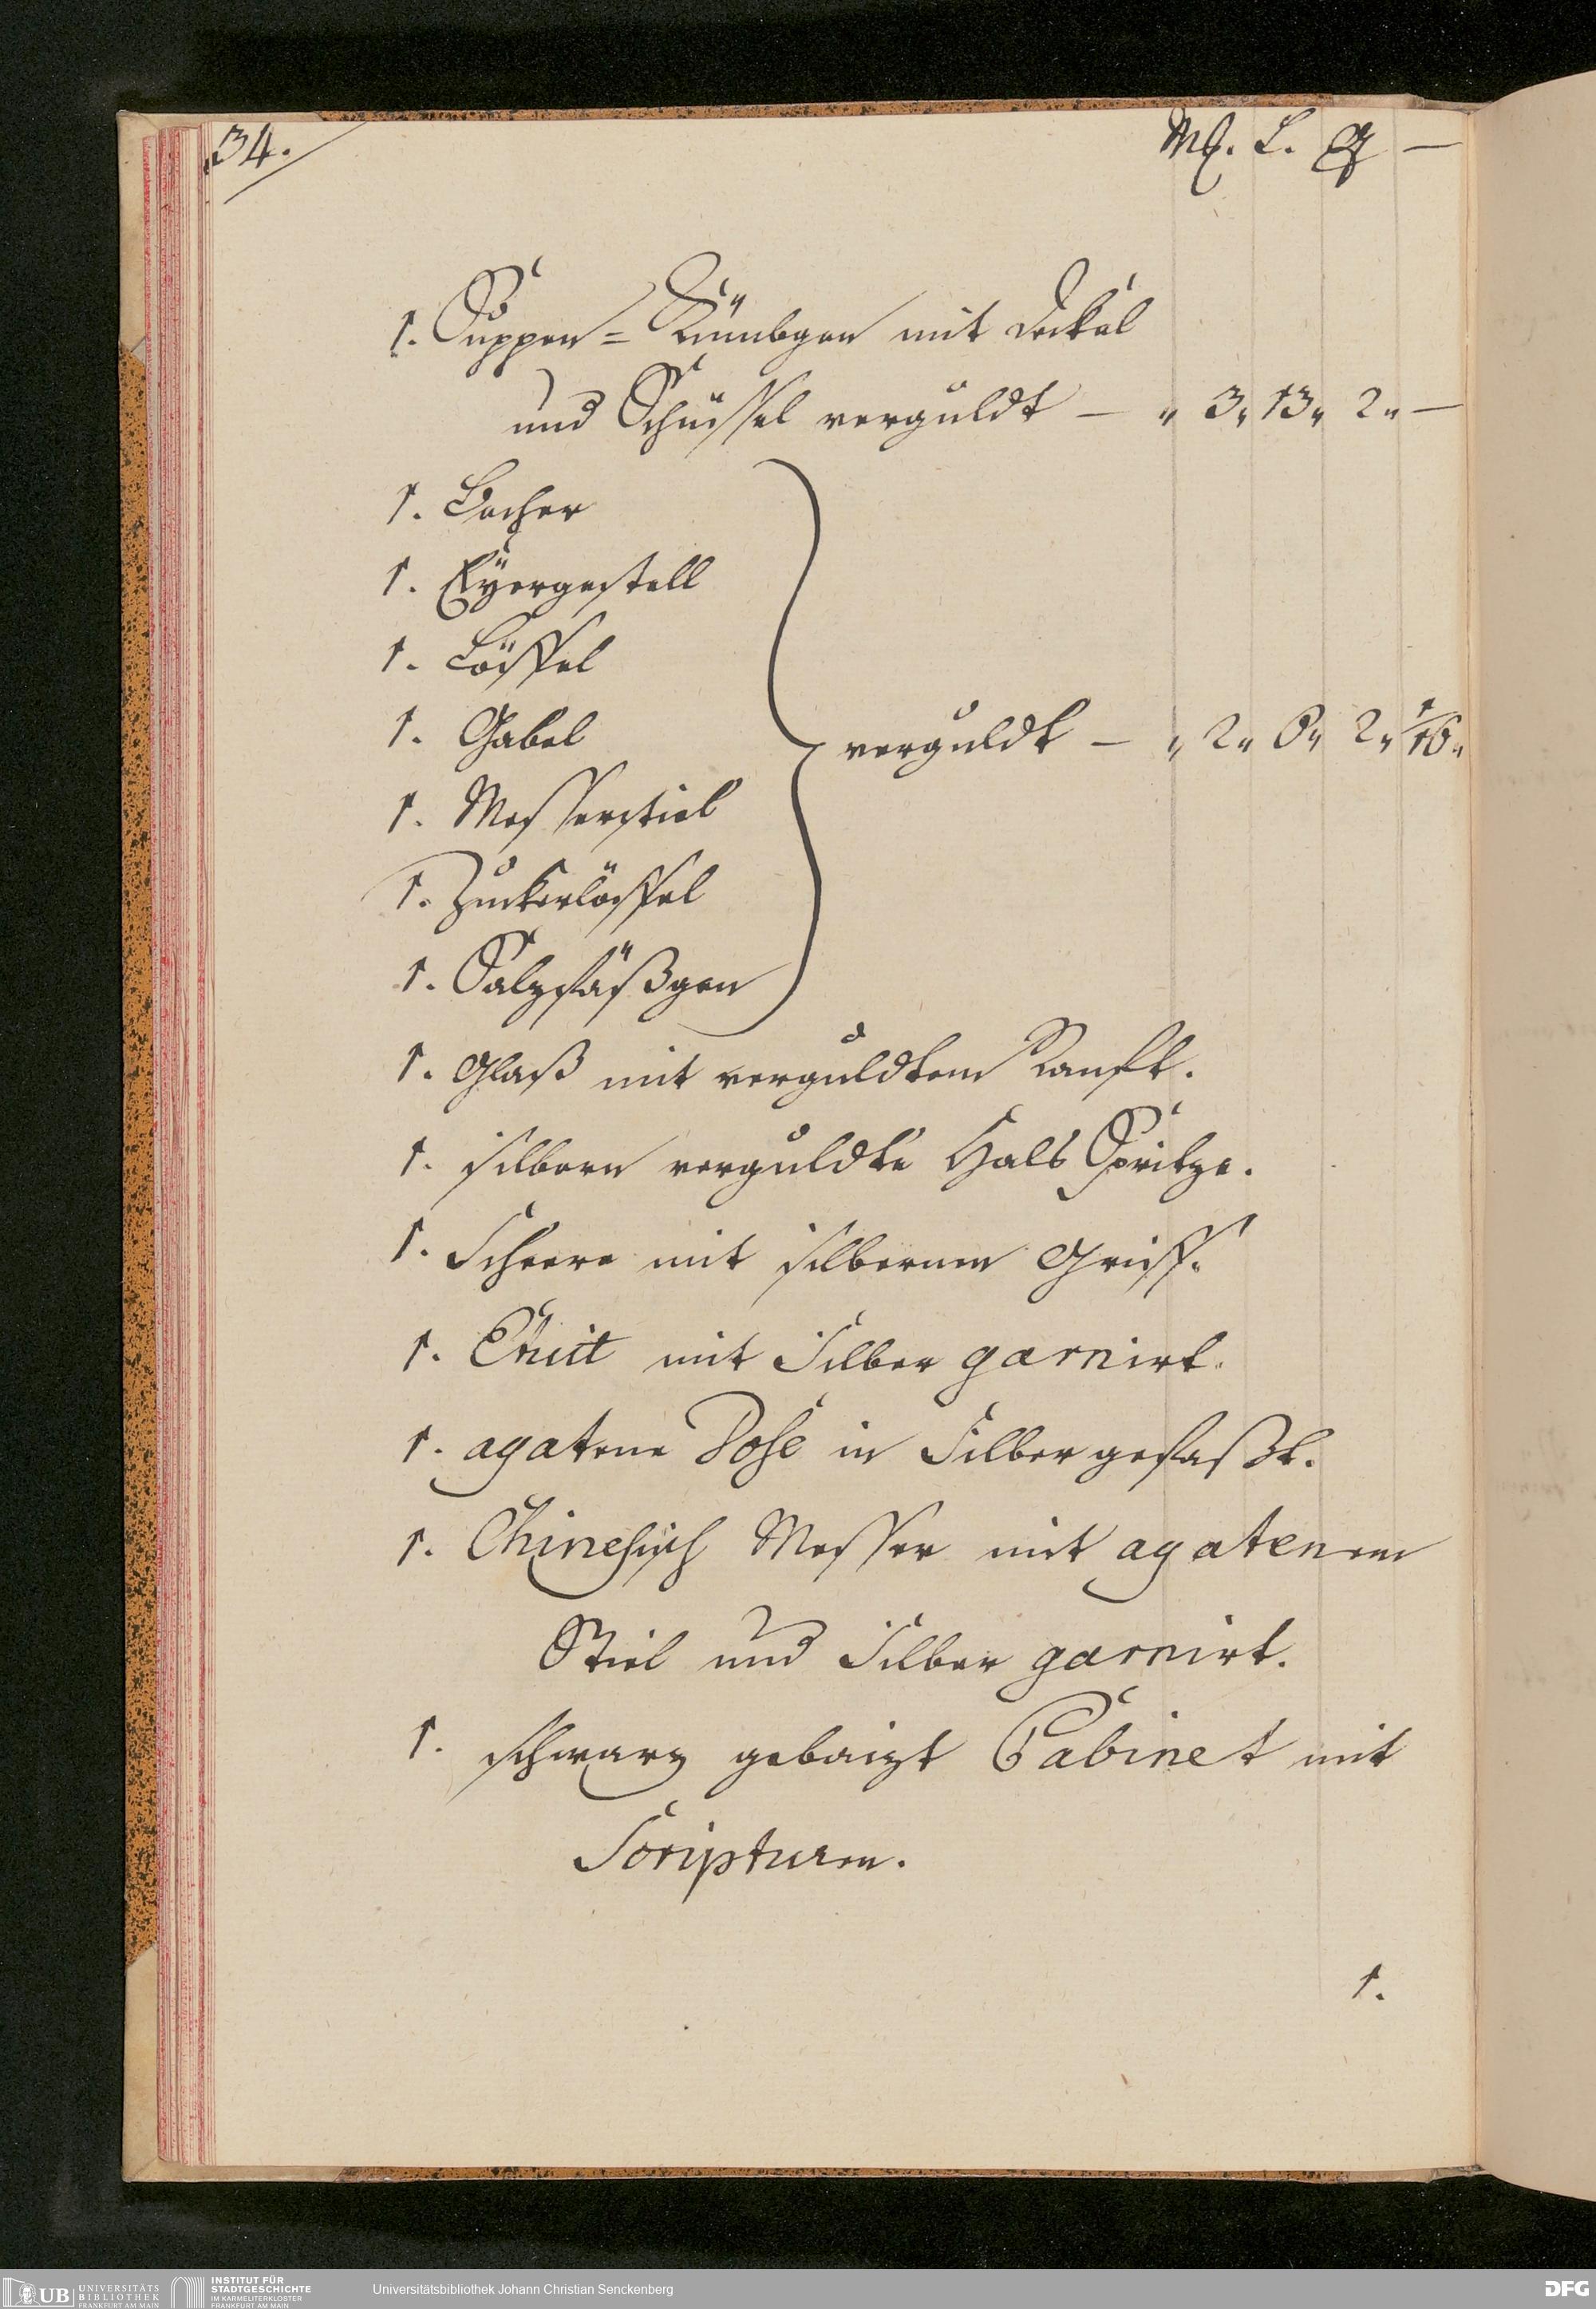 34.
M. L. Q —
1. Suppen= Kümbgen mit Deckel
und Schüssel verguldt — „ 3„ 13„ 2„ —
1. Becher
1. Eyergestell
1. Löffel
1. Gabel
verguldt — „ 2„ 6„ 2„ 1/16„
1. Messerstiel
1. Zuckerlöffel
1. Salzfäßgen
1. Glaß mit verguldtem Ranft.
1. silbern verguldte Hals Spritze.
1. Scheere mit silbernem Griff.
1. Etuit mit Silber garnirt.
1. agatene Dose in Silber gefaßt.
1. Chinesisch Messer mit agatenem
Stiel und Silber garnirt.
1. schwarz gebaizt Cabinet mit
Scripturen.
1.
UB UNIVERSITÄTS
BIBLIOTHEK
FRANKFURT AM MAIN
INSTITUT FÜR
STADTGESCHICHTE
IM KARMELITERKLOSTER
FRANKFURT AM MAIN
Universitätsbibliothek Johann Christian Senckenberg
DFG